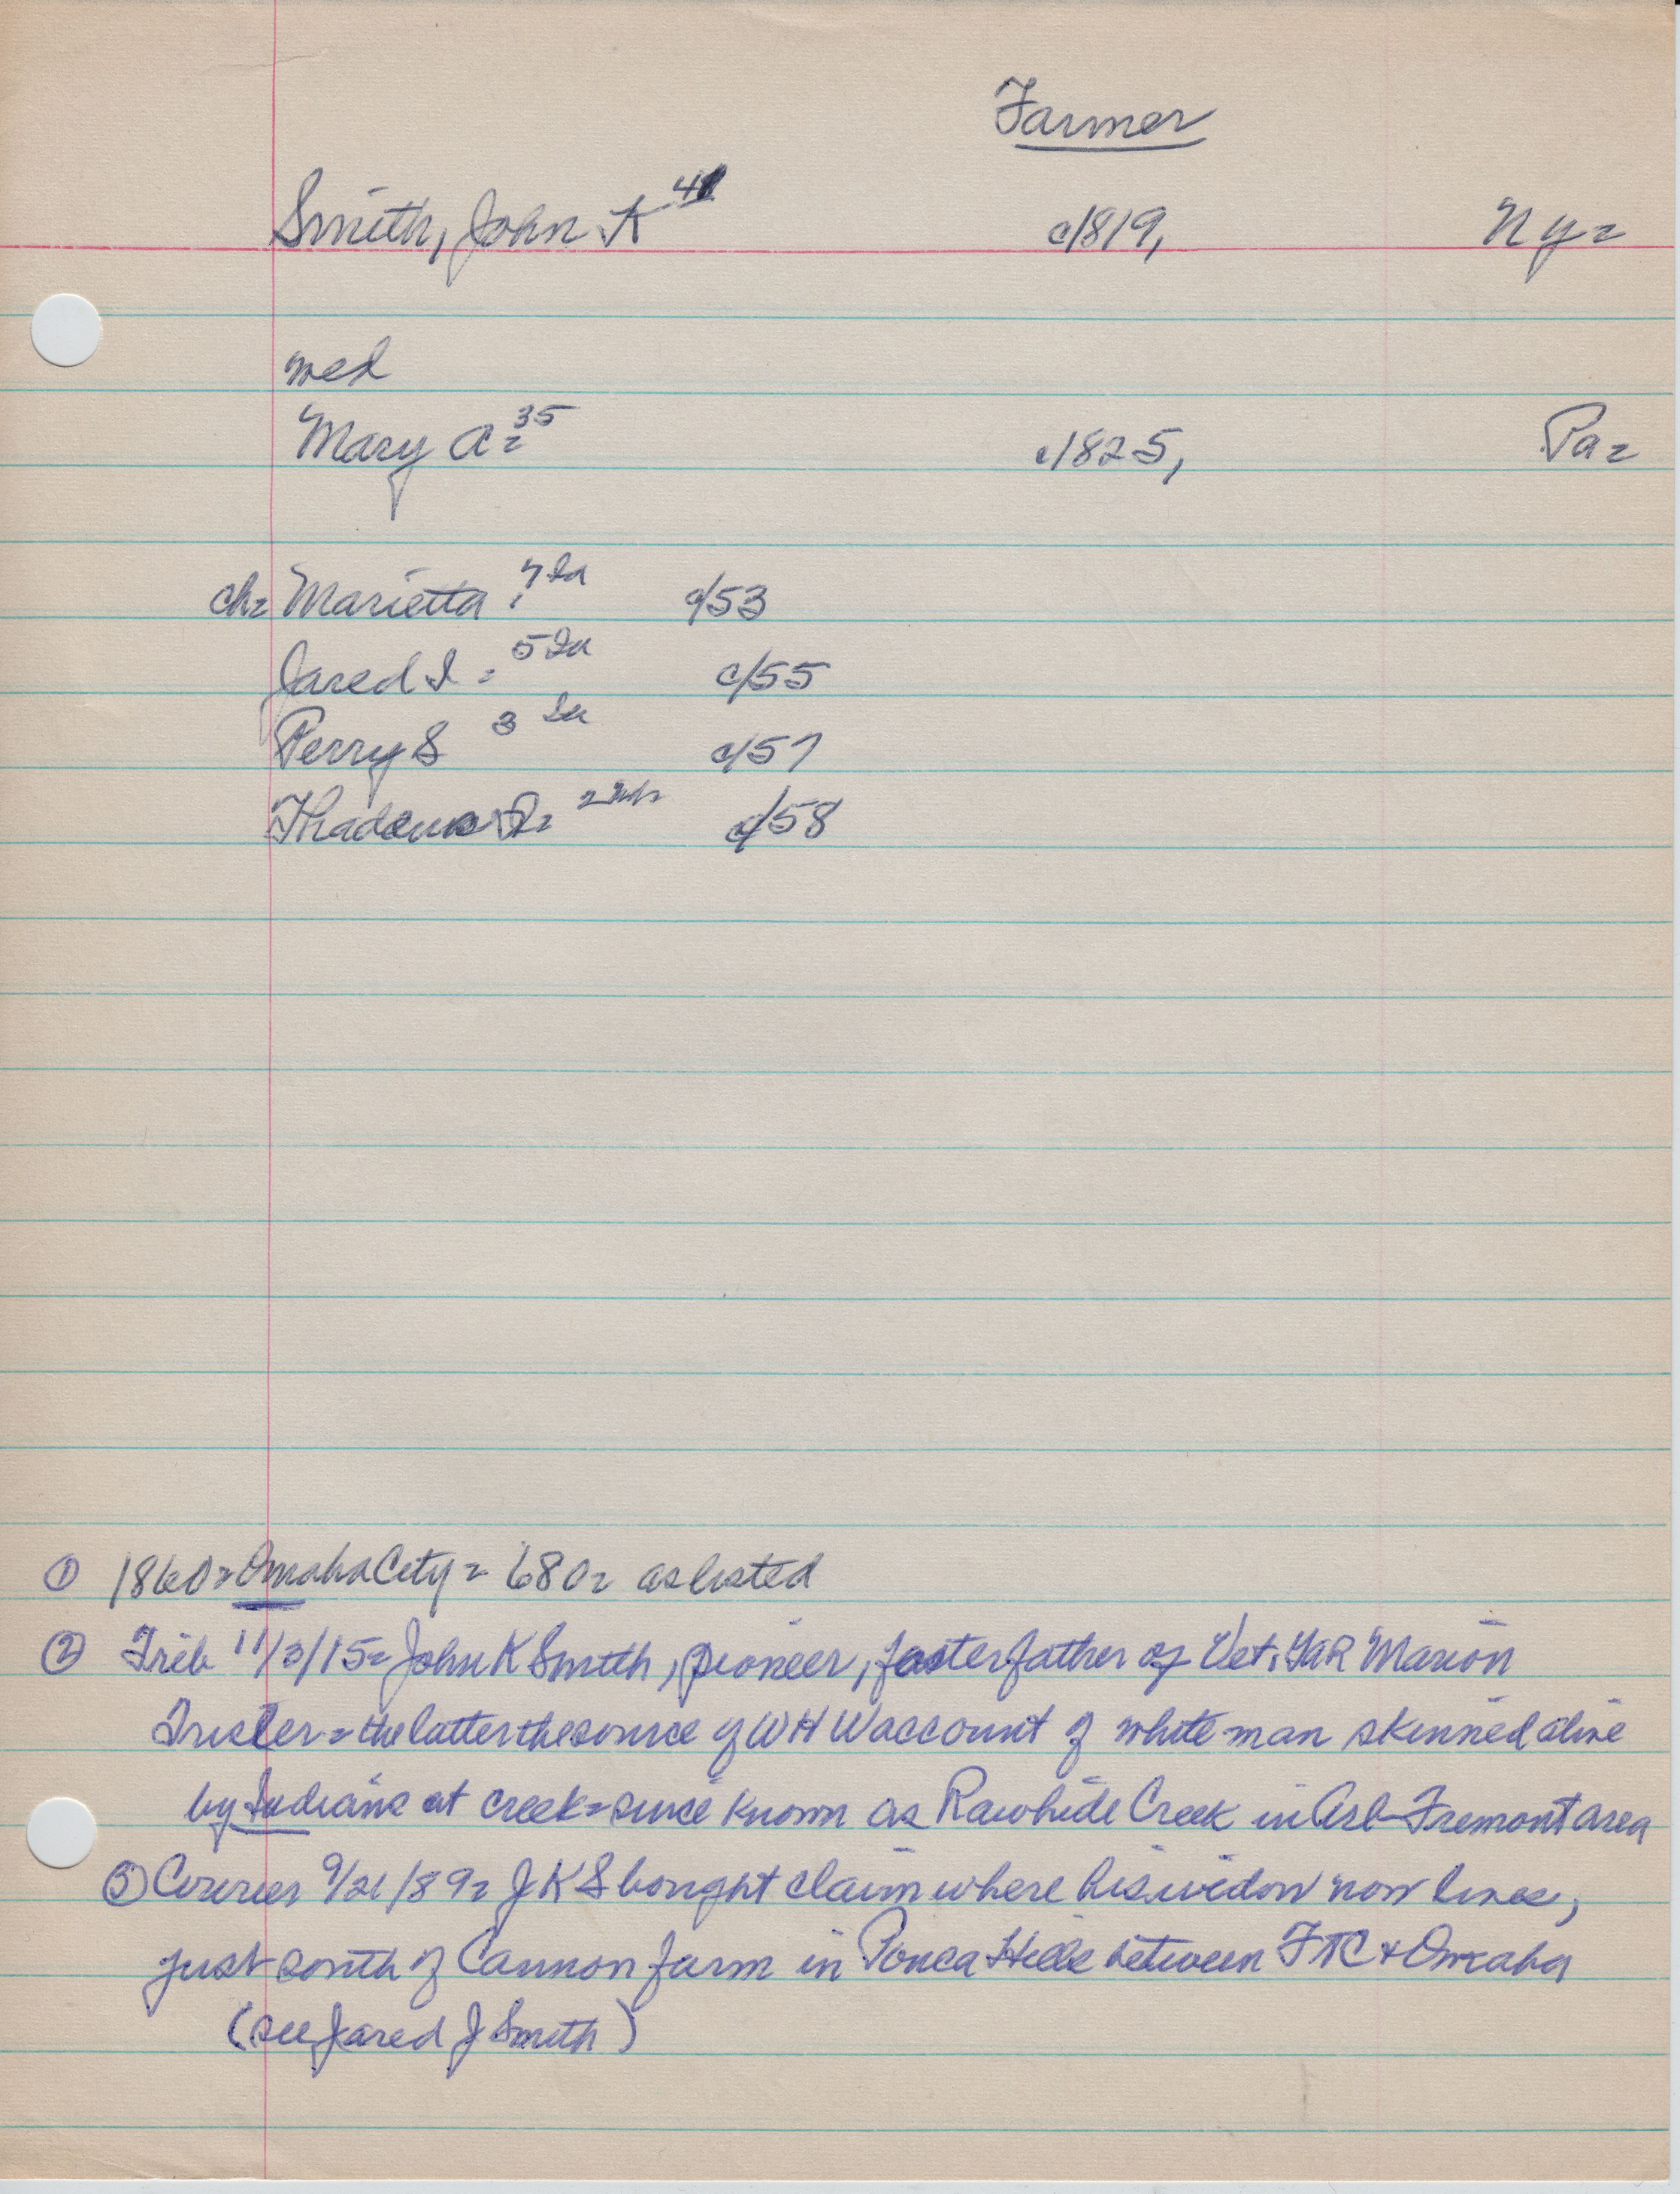 Farmer
Smith, John K 41 c/1819, Ny=
med
Mary A= 35 c/1825, Pa=
ch= Marietta 7 Ia c/53
Jared I = 5 Ia c/55
Perry S 3 Ia c/57
Thadeus 2 c/58
① 1860= Omaha City = 680= as listed
② Trib 11/3/15= John K Smith, pioneer, foster father of Vet. GAR Marion
Trisler = the latter the source of WHW account of white man skinned alive
by Indians at creek = since known as Rawhide Creek in Arl-Fremont area
③ Courier 9/21/89= JKS bought claim where his widow now lives,
just south of Cannon farm in Ponca Hills between FTC & Omaha
(see Jared J Smith)